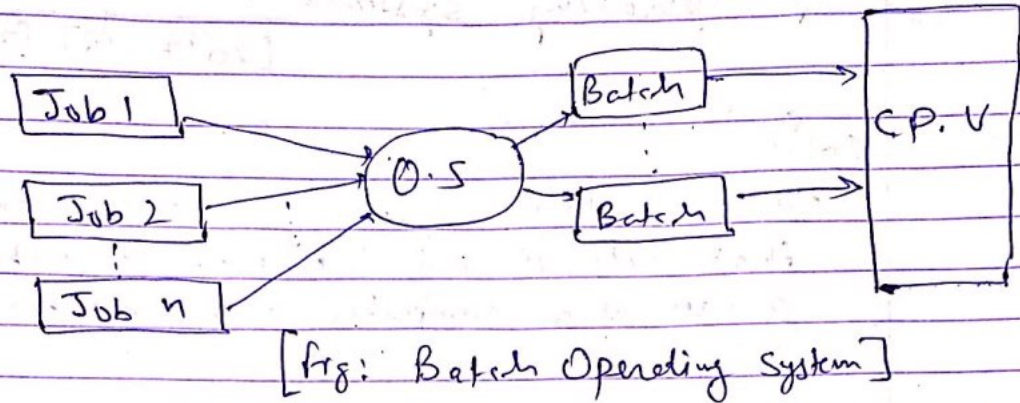 Job 1
Job 2
Job n
O.S
Batch
Batch
CP.U
[fig: Batch Operating System]